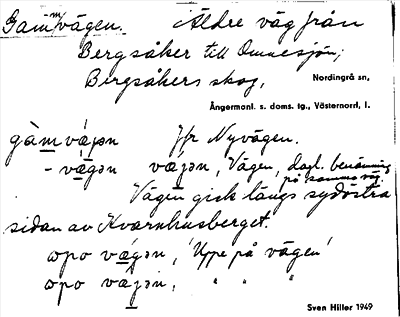 Gammvägen. Äldre väg från
Bergsåker till Omnesjön;
Bergsåkers skog,
Nordingrå sn,
Ångermanl. s. doms. tg., Västernorrl. l.
gàm vájən Jfr Nyvägen.
- vágən vájən, Vägen, dagl. benämning
på samma väg.
Vägen gick längs sydöstra
sidan av Kvarnhusberget.
ωpo vágən, 'Uppe på vägen'
ωpo vájən, " " "
Sven Hiller 1949